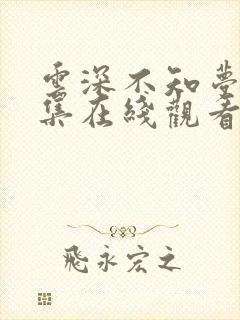 雲深不知夢
集在綫觀看
飛永宏之